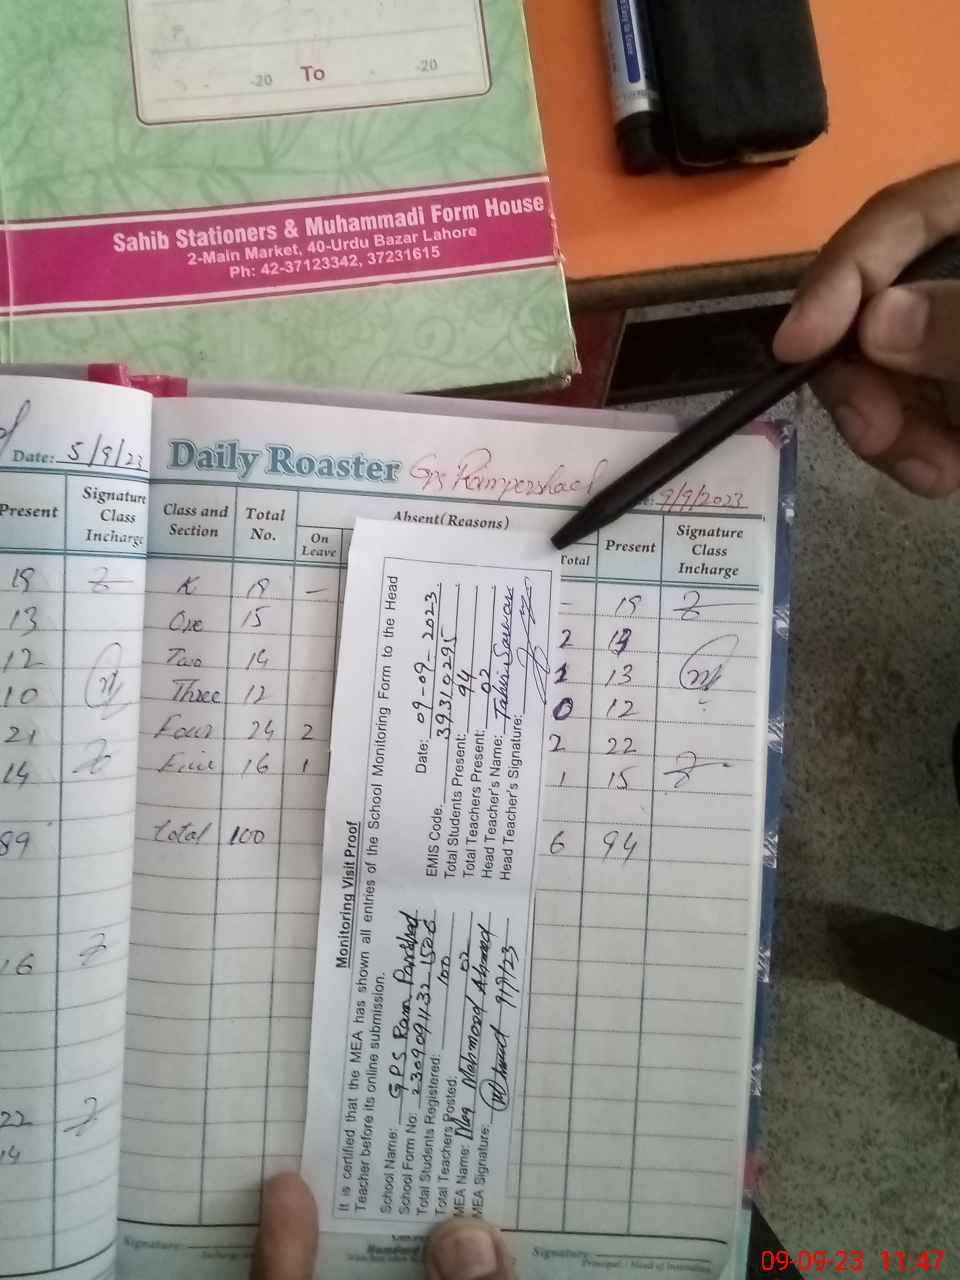 -20 To -20
Sahib Stationers & Muhammadi Form House
2-Main Market, 40-Urdu Bazar Lahore
Ph: 42-37123342, 37231615
Date: 5/9/23
Present Signature Class Incharge
19
13
12
10
21
14
89
16
22
14
Daily Roaster GPS Rampershad 9/9/2023
Class and Section Total No. Absent(Reasons) On Leave Total Present Signature Class Incharge
K 19 – – 19
One 15 2 13
Two 14 1 13
Three 12 0 12
Four 24 2 2 22
Five 16 1 1 15
total 100 6 94
Monitoring Visit Proof
It is certified that the MEA has shown all entries of the School Monitoring Form to the Head
Teacher before its online submission.
School Name: GPS Ram Parshad
School Form No: 
Total Students Registered: 100
Total Teachers Posted: 02
MEA Name: Mahmood Ahmed
MEA Signature: 9/9/23
Date: 09-09-2023
EMIS Code: 39310295
Total Students Present: 94
Total Teachers Present: 02
Head Teacher's Name: Tahir
Head Teacher's Signature:
Signature:
Signature:
09-09-23 11:47